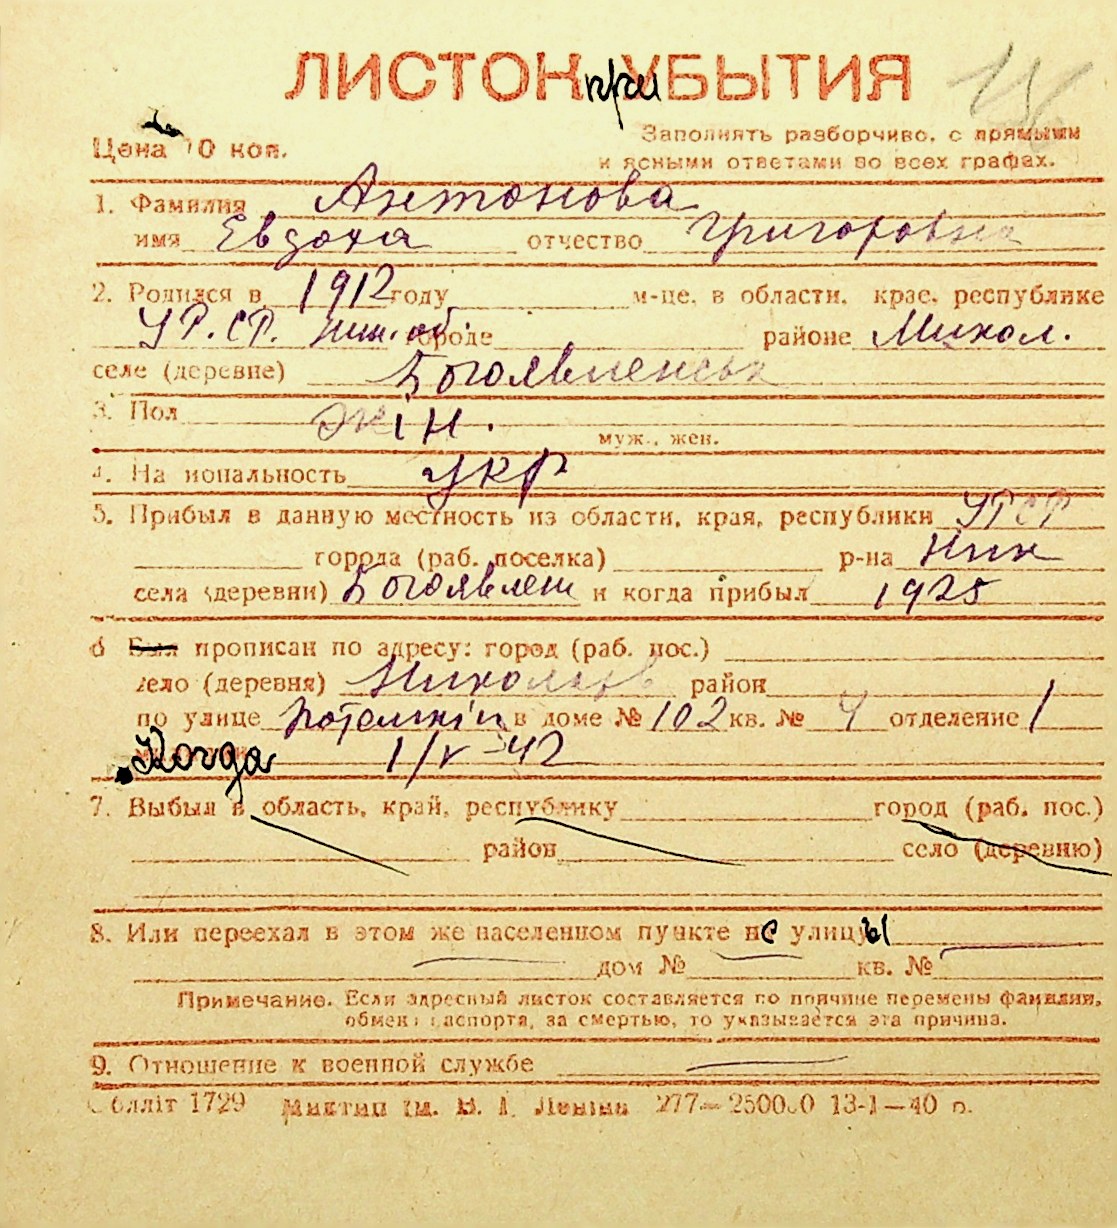 ЛИСТОК прибытия
Цена 10 коп.
Заполнять разборчиво, с прямыми
и ясными ответами во всех графах.
1. Фамилия Антонова
имя Евдоха отчество Григоровна
2. Родился в 1912 году м-це, в области, крае, республике
УРСР. Ник. об. городе районе Микол.
селе (деревне) Богоявленськ
3. Пол жін.
муж., жен.
4. Национальность укр
5. Прибыл в данную местность из области, края, республики УРСР
города (раб. поселка) р-на Ник
села (деревни) Богоявлен и когда прибыл 1925
6 Был прописан по адресу: город (раб. пос.)
село (деревня) Николаев район
по улице Потемкін в доме № 102 кв. № 4 отделение 1
Когда 1/V-42
7. Выбыл в область, край, республику город (раб. пос.)
район село (деревню)
8. Или переехал в этом же населенном пункте не улицы
дом № кв. №
Примечание. Если адресный листок составляется по причине перемены фамилии,
обмена паспорта, за смертью, то указывается эта причина.
9. Отношение к военной службе
Обліт 1729 ім. В. І. Леніна 277—250000 13-1—40 р.